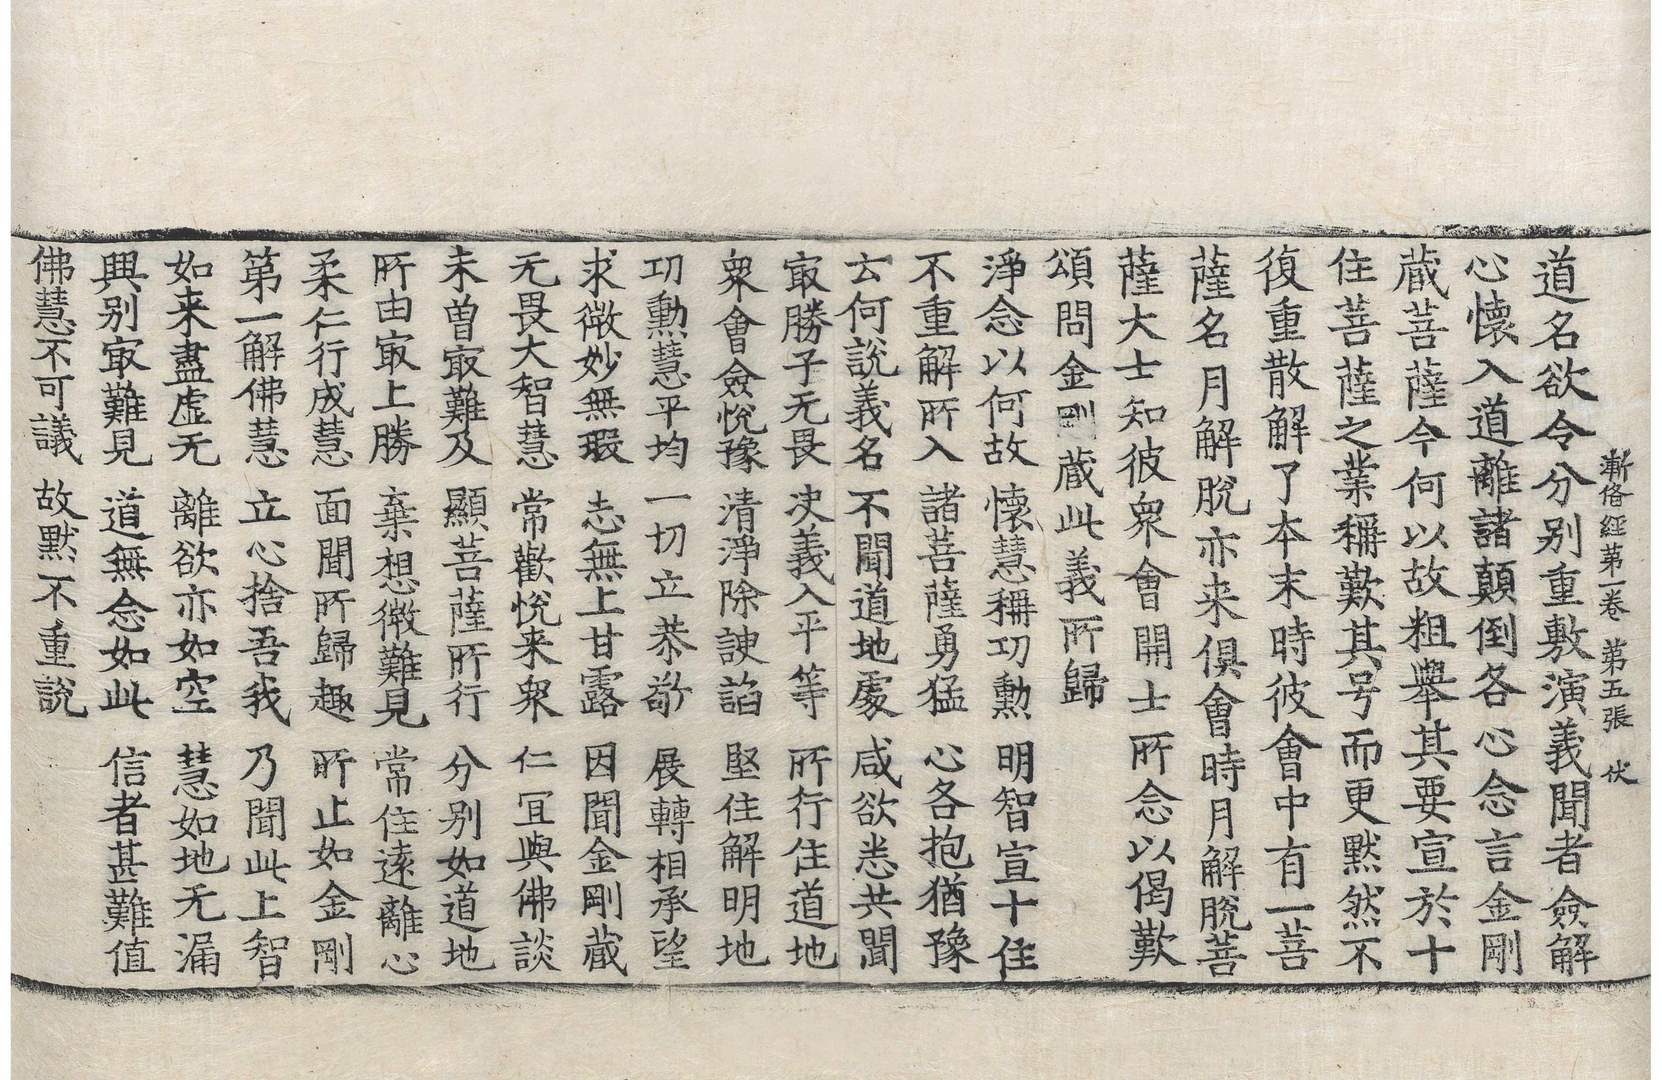 漸俻經第一卷 第五張 伏
道名欲令分别重敷演義聞者僉解
心懷入道離諸顛倒各心念言金剛
蔵菩薩今何以故粗舉其要宣於十
住菩薩之業稱歎其号而更黙然不
復重散解了本末時彼會中有一菩
薩名月解脫亦来俱會時月解脫菩
薩大士知彼衆會開士所念以偈歎
頌問金剛蔵此義所歸
淨念以何故 懷慧稱功勲 明智宣十住
不重解所入 諸菩薩勇猛 心各抱猶豫
云何說義名 不聞道地處 咸欲悉共聞
㝡勝子无畏 决義入平等 所行住道地
衆會僉悅豫 清淨除諛諂 堅住解明地
功勲慧平均 一切立恭敬 展轉相承望
求微妙無瑕 志無上甘露 因聞金剛蔵
无畏大智慧 常歡悅来衆 仁冝與佛談
未曽㝡難及 顯菩薩所行 分别如道地
所由㝡上勝 棄想微難見 常住遠離心
柔仁行成慧 面聞所歸趣 所止如金剛
第一解佛慧 立心捨吾我 乃聞此上智
如来盡虚无 離欲亦如空 慧如地无漏
興别㝡難見 道無念如此 信者甚難值
佛慧不可議 故黙不重說